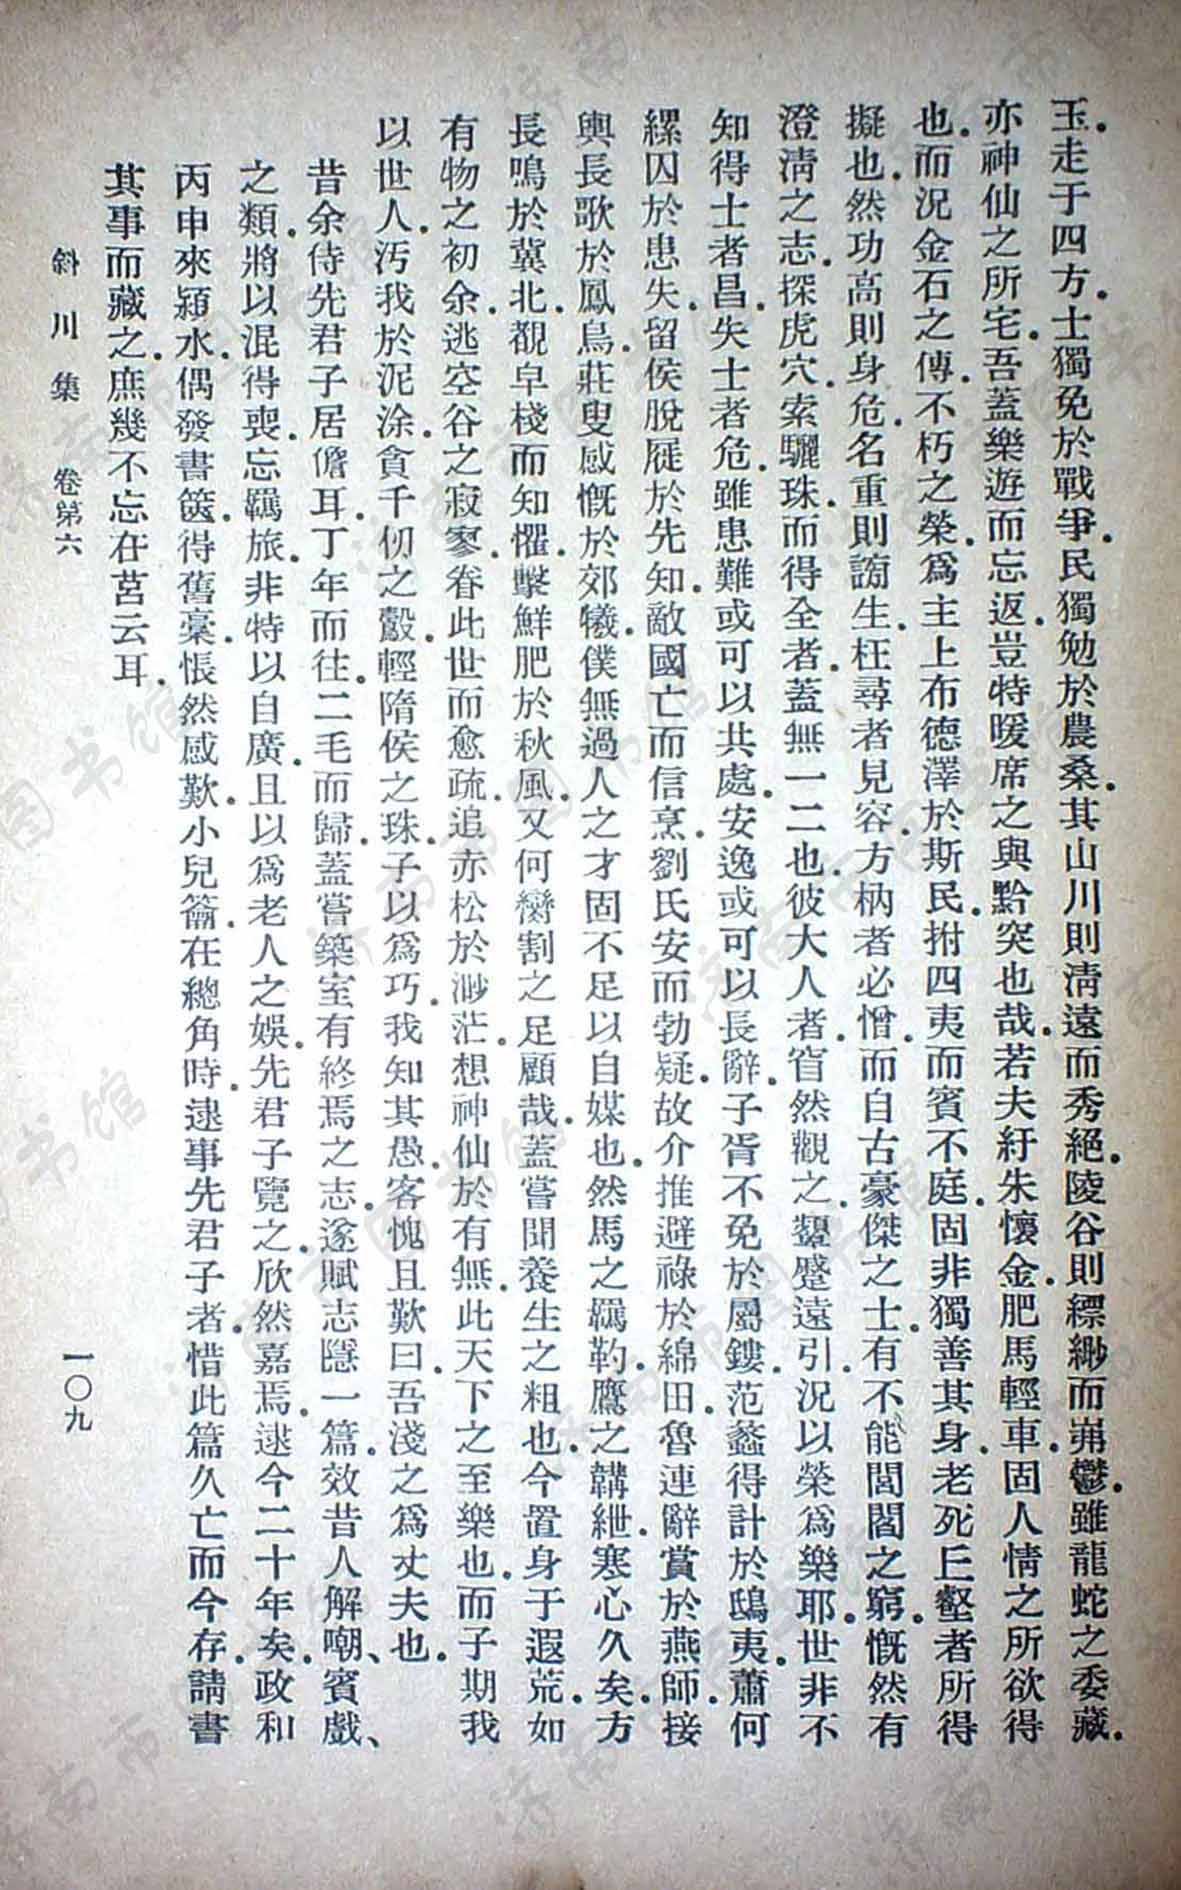 玉走于四方士獨免於戰爭民獨勉於農桑其山川則清遠而秀絕陵谷則縹緲而岪鬱雖龍蛇之委藏
亦神仙之所宅吾蓋樂遊而忘返豈特暖席之與黔突也哉若夫紆朱懷金肥馬輕車固人情之所欲得
也而況金石之傳不朽之榮爲主上布德澤於斯民拊四夷而賓不庭固非獨善其身老死丘壑者所得
擬也然功高則身危名重則謗生枉尋者見容方枘者必憎而自古豪傑之士有不能閭閻之窮慨然有
澄淸之志探虎穴索驪珠而得全者蓋無一二也彼大人者窅然觀之顰蹙遠引況以榮爲樂耶世非不
知得士者昌失士者危雖患難或可以共處安逸或可以長辭子胥不免於屬鏤范蠡得計於鴟夷蕭何
縲囚於患失留侯脫屣於先知敵國亡而信烹劉氏安而勃疑故介推避祿於綿田魯連辭賞於燕師接
輿長歌於鳳鳥莊叟感慨於郊犧僕無過人之才固不足以自媒也然馬之羈靮鷹之韝紲寒心久矣方
長鳴於冀北覩皁棧而知懼擊鮮肥於秋風又何臠割之足顧哉蓋嘗聞養生之粗也今置身于遐荒如
有物之初余逃空谷之寂寥眷此世而愈疏追赤松於渺茫想神仙於有無此天下之至樂也而子期我
以世人汚我於泥涂貪千仞之鷇輕隋侯之珠子以爲巧我知其愚客愧且歎曰吾淺之爲丈夫也
昔余侍先君子居儋耳丁年而往二毛而歸蓋嘗築室有終焉之志遂賦志隱一篇效昔人解嘲、賓戲、
之類將以混得喪忘羈旅非特以自廣且以爲老人之娛先君子覽之欣然嘉焉逮今二十年矣政和
丙申來潁水偶發書篋得舊稾悵然感歎小兒籥在總角時逮事先君子者惜此篇久亡而今存請書
其事而藏之庶幾不忘在莒云耳
斜川集 卷第六 一〇九